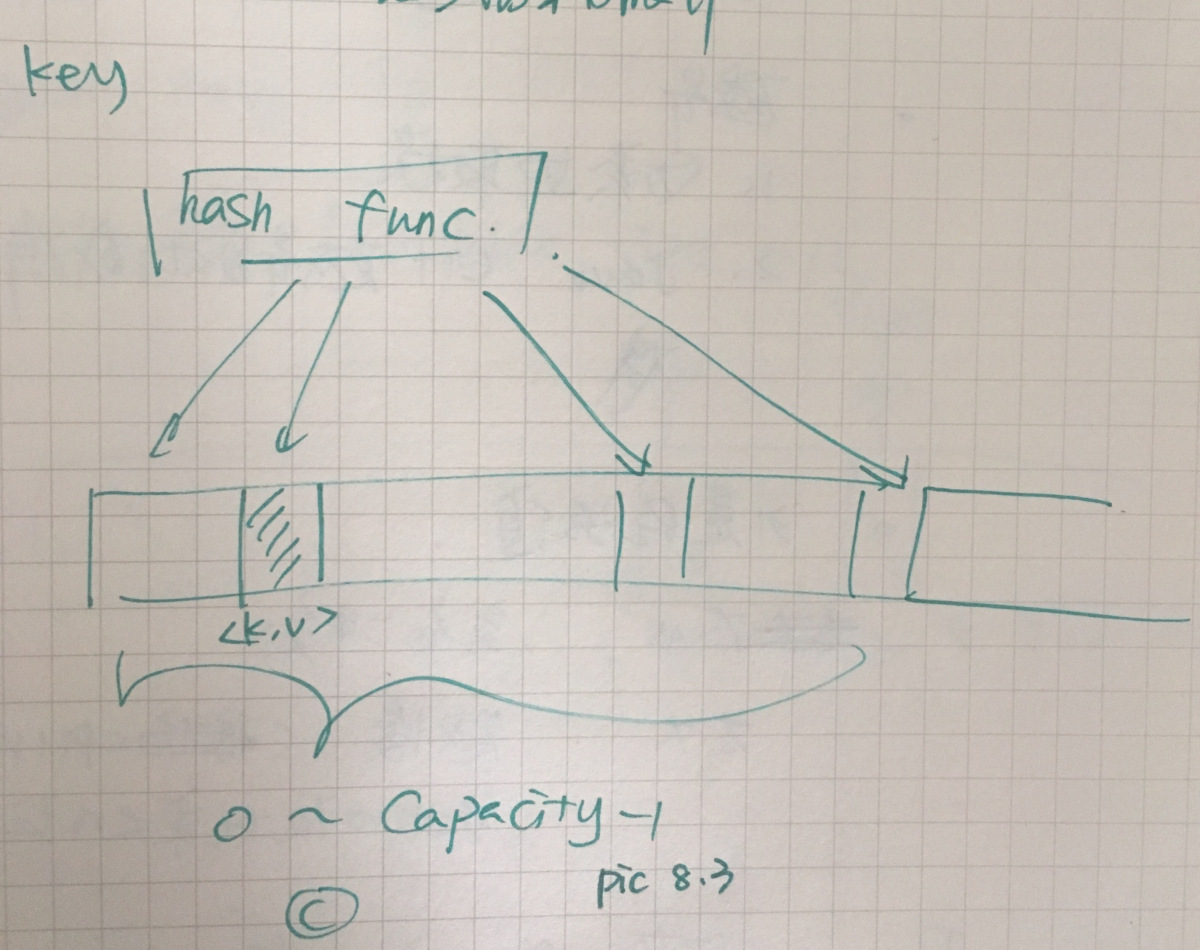 key
hash func.
<k,v>
0 ~ Capacity -1
pic 8.3
©